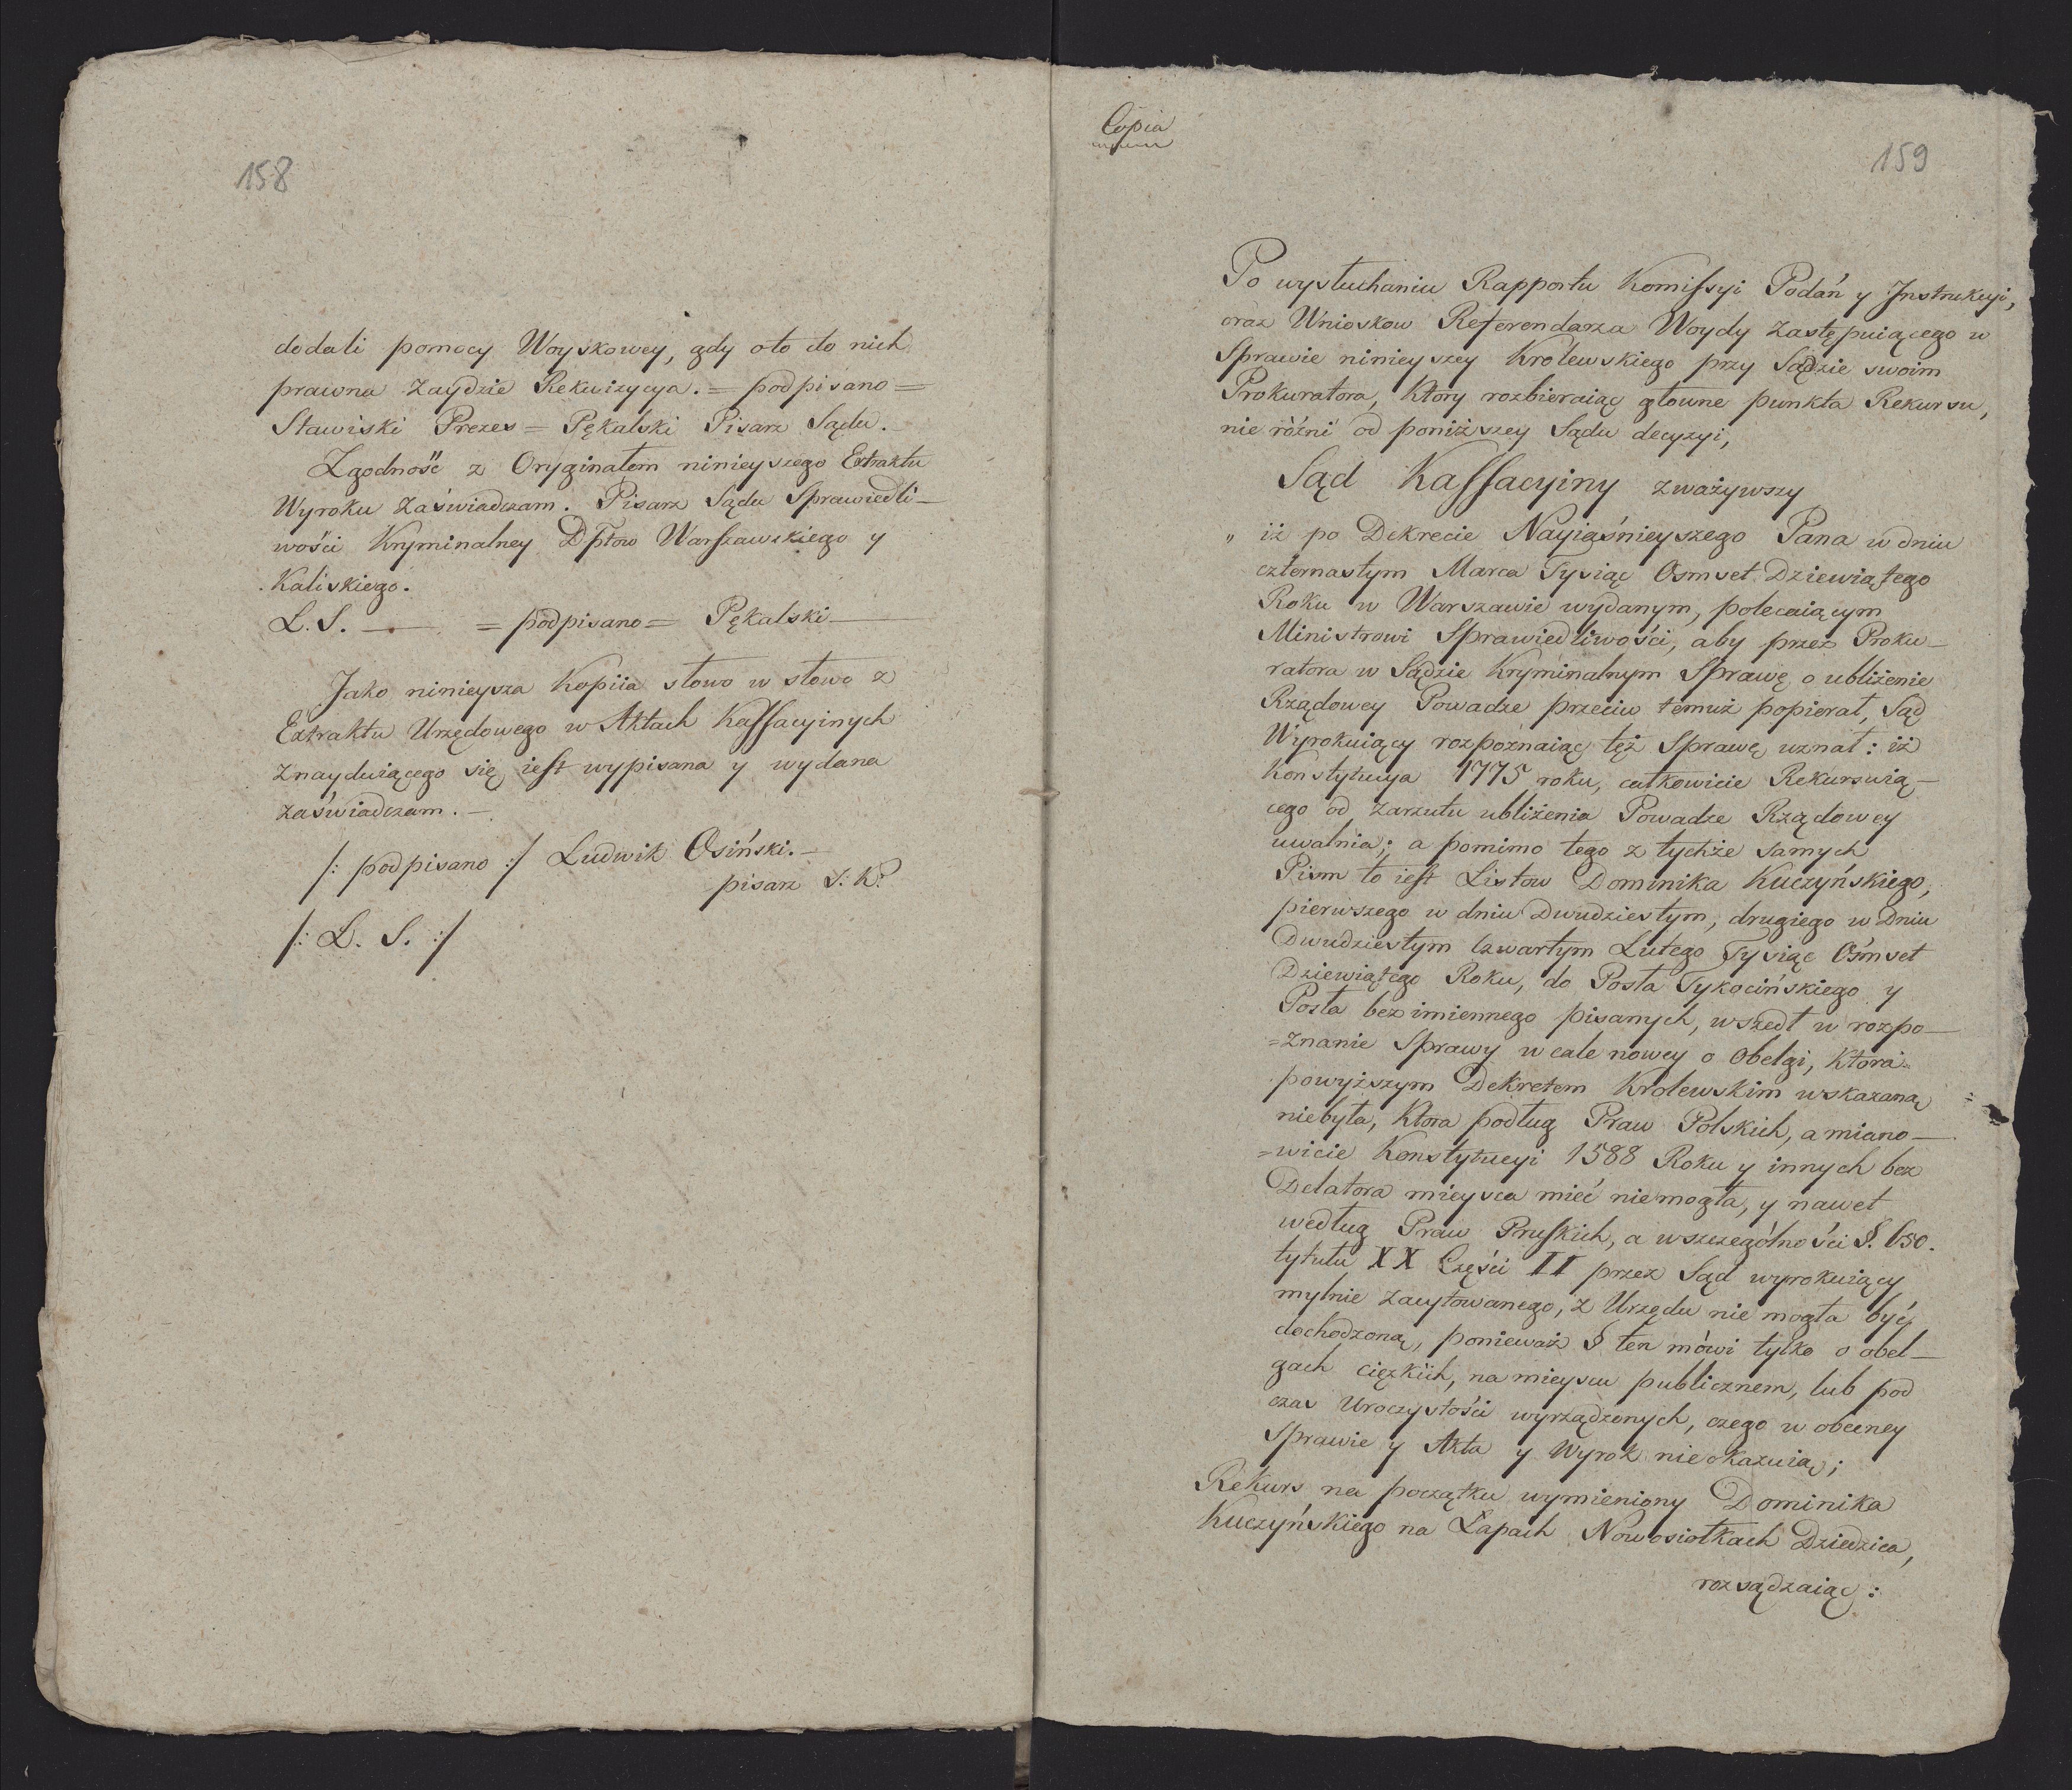 158
dodali pomocy Woyskowey, gdy oto do nich
prawna Zaydzie Rekwizycya. = podpisano =
Stawiski Prezes = Pękalski Pisarz Sądu.
Zgodność z Oryginałem ninieyszego Extraktu
Wyroku Zaświadczam. Pisarz Sądu Sprawiedli-
wości Kryminalney Dptow Warszawskiego y
Kaliskiego.
L. S. — = podpisano = Pękalski —
Jako ninieysza Kopiia słowo w słowo z
Extraktu Urzędowego w Aktach Kassacyinych
Znayduiącego się iest wypisana y wydana
zaświadczam. —
/: podpisano :/ Ludwik Osiński. —
pisarz S: K:
/: L. S. :/
Copia
159
Po wysłuchaniu Rapportu Komissyi Podań y Instrukcyi,
oraz Wniosków Referendarza Woydy Zastępuiącego w
Sprawie ninieyszey Królewskiego przy Sądzie swoim
Prokuratora, Ktory rozbieraiąc głowne punkta Rekursu,
nie różni od poniższey Sądu decyzyi,
Sąd Kassacyiny zważywszy
" iż po Dekrecie Nayiaśnieyszego Pana w dniu
czternastym Marca Tysiąc Osmset Dziewiątego
Roku w Warszawie wydanym, polecaiącym
Ministrowi Sprawiedliwości, aby przez Proku-
ratora w Sądzie Kryminalnym Sprawę o ubliżenie
Rządowey Powadze przeciw temuż popierał, Sąd
Wyrokuiący rozpoznaiąc tęż Sprawę uznał: iż
Konstytucya 1775 roku, całkowicie Rekursuią-
cego od zarzutu ubliżenia Powadze Rządowey
uwalnia; a pomimo tego z tychże samych
Pism to iest Listow Dominika Kuczyńskiego,
pierwszego w dniu Dwudziestym, drugiego w Dniu
Dwudziestym Czwartym Lutego Tysiąc Ośmset
Dziewiątego Roku, do Posła Tykocińskiego y
Posła bezimiennego pisanych, wszedł w rozpo-
=znanie Sprawy w cale nowey o Obelgi, Ktora
powyższym Dekretem Krolewskim wskazaną
niebyła, Ktora podług Praw Polskich, a miano-
=wicie Konstytucyi 1588 Roku y innych bez
Delatora mieysca mieć niemogła, y nawet
według Praw Pruskich, a wszczególności §. 650.
tytułu XX Części II przez Sąd wyrokuiący
mylnie zacytowanego, z Urzędu nie mogła być
dochodzoną, ponieważ § ten mówi tylko o obel-
gach ciężkich, na mieyscu publicznem, lub pod
czas Uroczystości wyrządzonych, czego w obecney
Sprawie y Akta y Wyrok nieokazuią;
Rekurs na początku wymieniony Dominika
Kuczyńskiego na Łapach Nowosiołkach Dziedzica,
rozsądzaiąc: